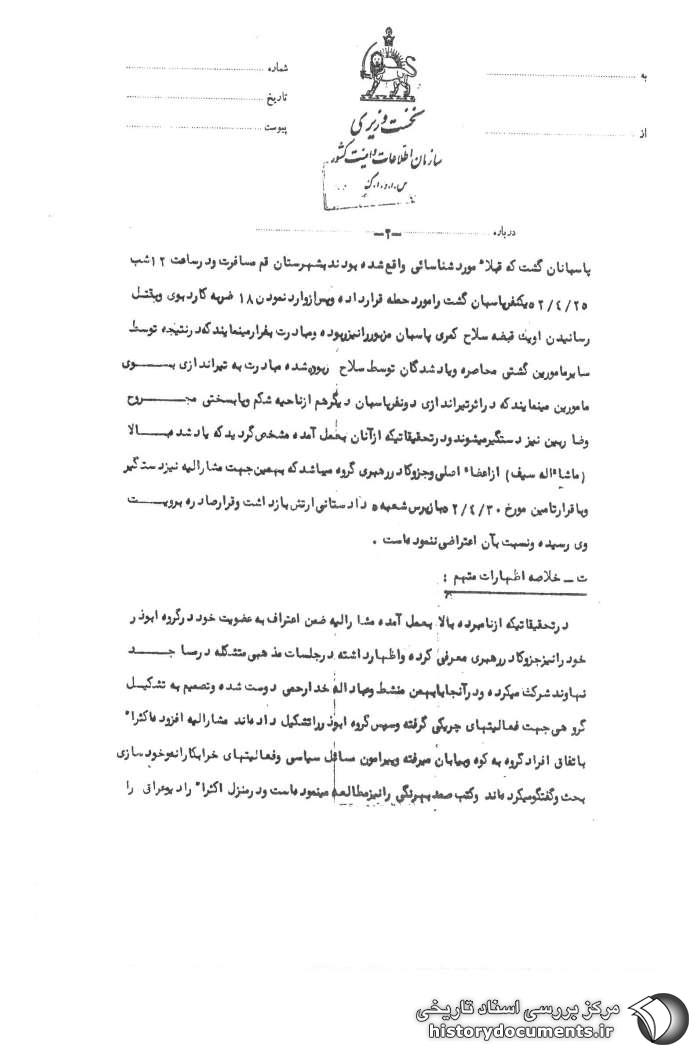 به
از
شماره
تاریخ
پیوست
نخست وزیری
سازمان اطلاعات و امنیت کشور
س.ا.و.ا.ک
درباره
-۲-
پاسبانان گشت که قبلاً مورد شناسائی واقع شده بودند بشهرستان قم مسافرت و در ساعت ۱۲ شب
۵۲/۴/۲۵ یکنفر پاسبان گشت را مورد حمله قرار داده و پس از وارد نمودن ۱۸ ضربه کارد بوی و بقتل
رسانیدن او یک قبضه سلاح کمری پاسبان مزبور را نیز ربوده و مبادرت بفرار مینمایند که در نتیجه توسط
سایر مامورین گشتی محاصره و یاد شدگان توسط سلاح ربوده شده مبادرت به تیراندازی بسوی
مامورین مینمایند که در اثر تیراندازی دو نفر پاسبان دیگر هم از ناحیه شکم و پا بسختی مجروح
و ضاربین نیز دستگیر میشوند و در تحقیقاتیکه از آنان بعمل آمده مشخص گردید که یاد شده بالا
(ماشاءاله سیف) از اعضاء اصلی و جزو کادر رهبری گروه میباشد که بهمین جهت مشارالیه نیز دستگیر
و با قرار تامین مورخ ۵۲/۴/۳۰ بازپرس شعبه ۵ دادستانی ارتش بازداشت و قرار صادره برویت
وی رسیده و نسبت بآن اعتراضی ننموده است .
ت ـ خلاصه اظهارات متهم :
در تحقیقاتیکه از نامبرده بالا بعمل آمده مشارالیه ضمن اعتراف به عضویت خود در گروه ابوذر
خود را نیز جزو کادر رهبری معرفی کرده و اظهار داشته در جلسات مذهبی متشکله در مساجد
نهاوند شرکت میکرده و در آنجا با بهمن منشط و عباد اله خدارحمی دوست شده و تصمیم به تشکیل
گروهی جهت فعالیتهای چریکی گرفته و سپس گروه ابوذر را تشکیل داده اند مشارالیه افزوده اکثراً
با تفاق افراد گروه به کوه و بیابان میرفته و پیرامون مسائل سیاسی و فعالیتهای خرابکارانه و خود سازی
بحث و گفتگو میکرده اند و کتب صمد بهرنگی را نیز مطالعه مینموده است و در منزل اکثراً رادیو عراق را
مرکز بررسی اسناد تاریخی
historydocuments.ir